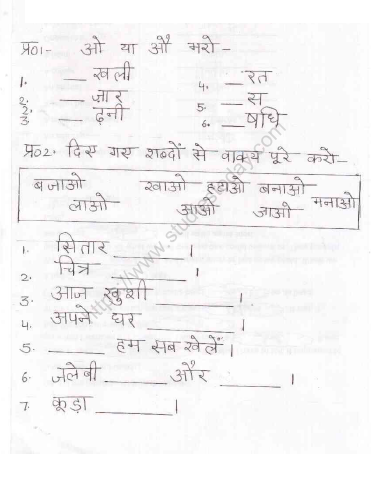 प्र01- ओ या औ भरो-
1. __ खली
2. __ ज़ार
3 __ ढ़नी
4. __ रत
5. __ स
6. __ षधि
प्र02. दिए गए शब्दों से वाक्य पूरे करो-
बजाओ खाओ हटाओ बनाओ
लाओ आओ जाओ मनाओ
1. सितार ______ ।
2. चित्र ______ ।
3. आज खुशी ______ ।
4. अपने घर ______ ।
5. ______ हम सब खेलें ।
6. जलेबी ______ और ______ ।
7. कूड़ा ______ ।
https://www.studiestoday.com